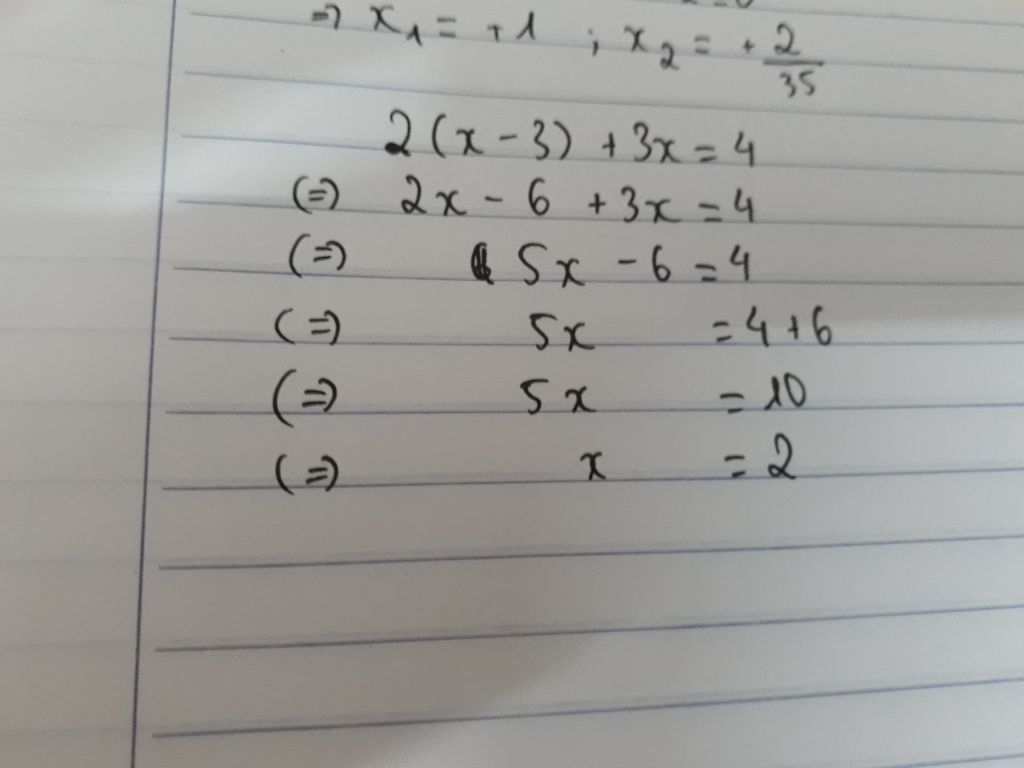 => x₁ = +1 ; x₂ = + 2/35
2(x - 3) + 3x = 4
(=) 2x - 6 + 3x = 4
(=) 5x - 6 = 4
(=) 5x = 4 + 6
(=) 5x = 10
(=) x = 2